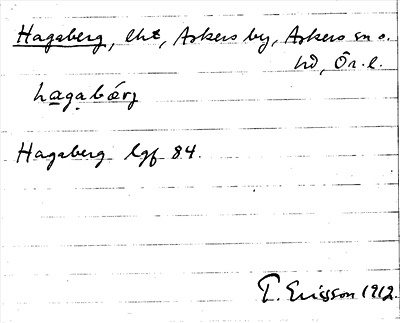 Hagaberg, lht, Askers by, Askers sn o.
hd, Ör. l.
hagabärj
Hagaberg lgf 84.
T. Ericsson 1912.